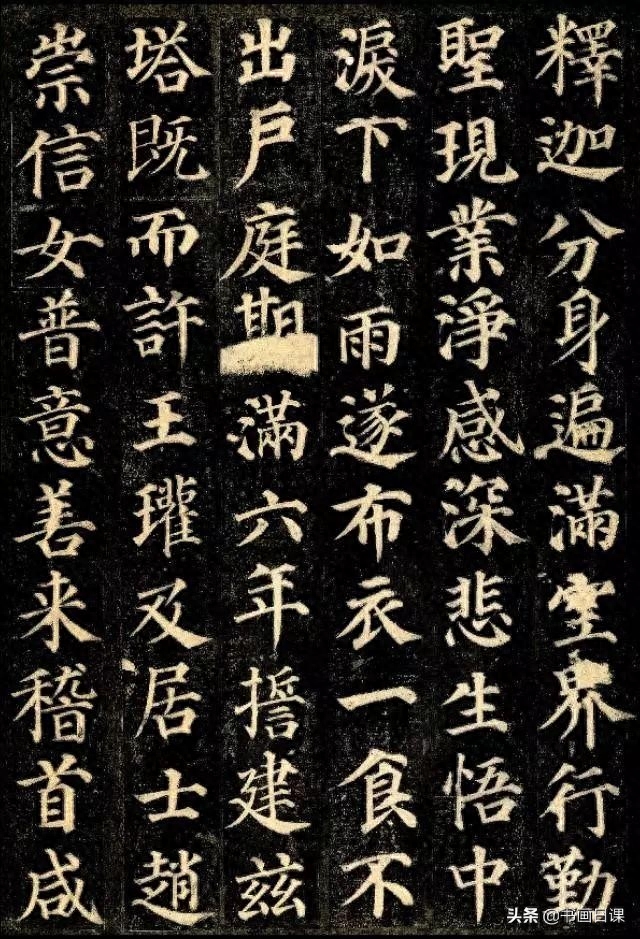 釋迦分身遍滿空界行勤
聖現業淨感深悲生悟中
淚下如雨遂布衣一食不
出戶庭期滿六年誓建茲
塔既而許王瓘及居士趙
崇信女普意善来稽首咸
头条 @书画日课